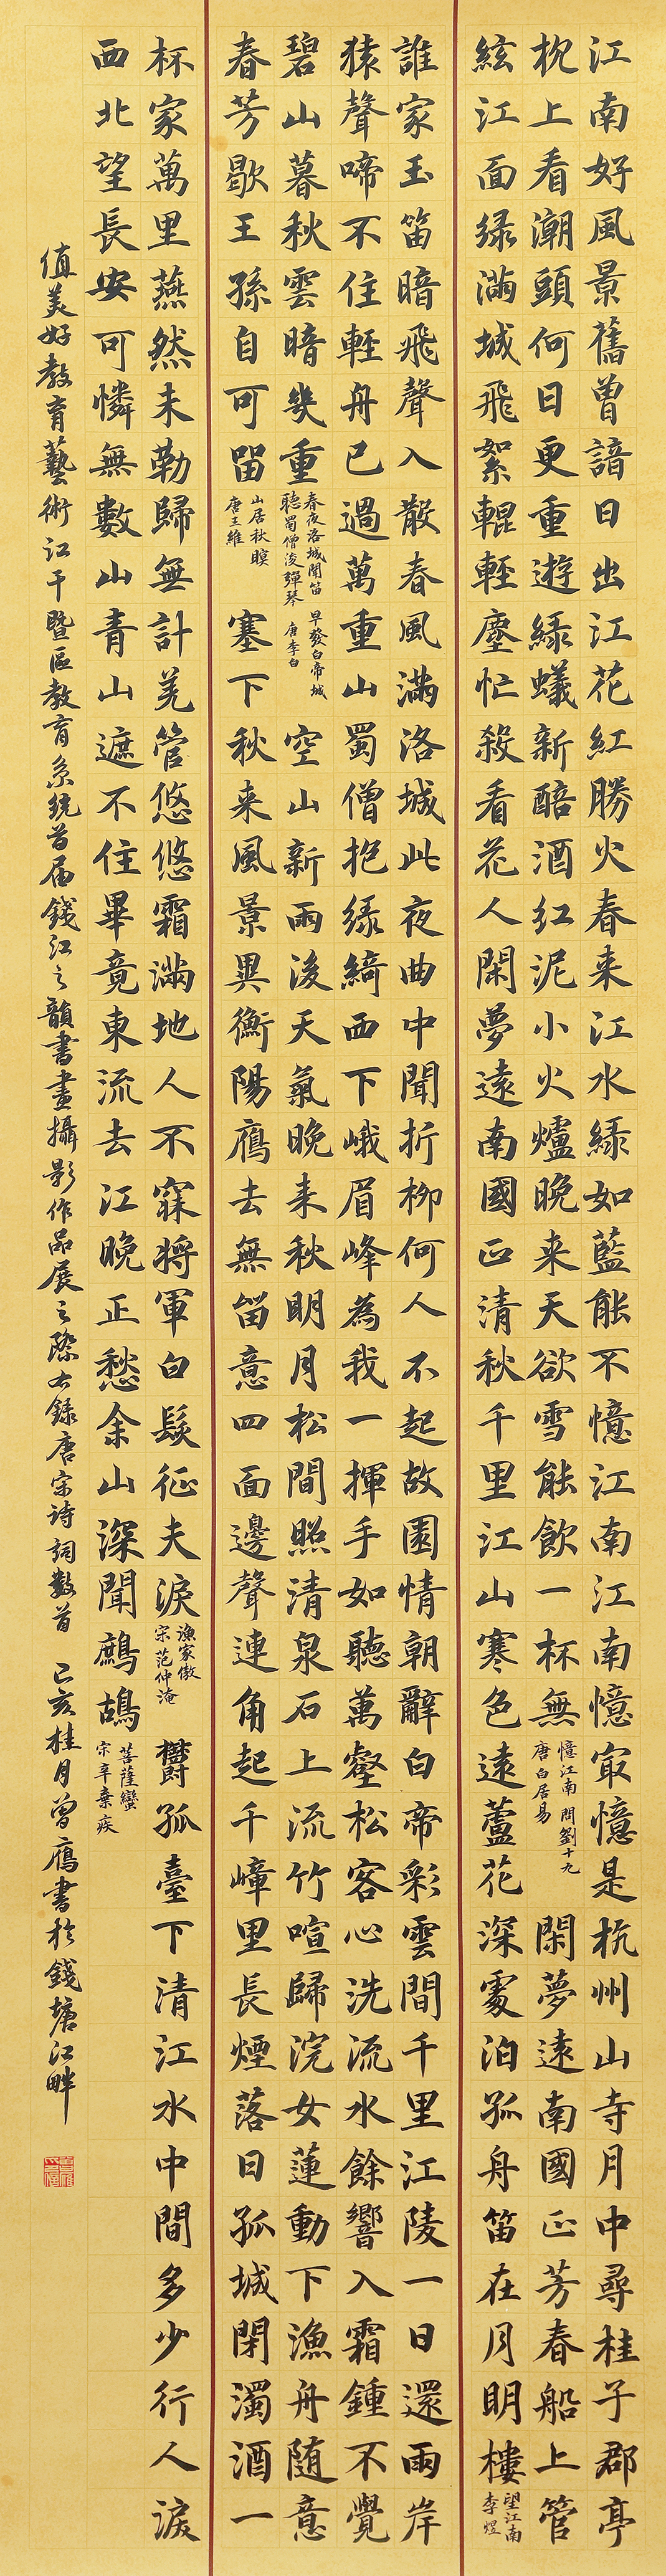 江南好風景舊曾諳日出江花紅勝火春来江水緑如藍能不憶江南江南憶㝡憶是杭州山寺月中尋桂子郡亭
枕上看潮頭何日更重遊緑蟻新醅酒红泥小火爐晚来天欲雪能飲一杯無
憶江南 問劉十九
唐白居易
閑夢遠南國正芳春船上管
絃江面緑滿城飛絮輥輕塵忙殺看花人閑夢遠南國正清秋千里江山寒色遠蘆花深處泊孤舟笛在月明樓
望江南
李煜
誰家玉笛暗飛聲入散春風滿洛城此夜曲中聞折柳何人不起故園情朝辭白帝彩雲間千里江陵一日還兩岸
猿聲啼不住輕舟已過萬重山蜀僧抱緑綺西下峨眉峰為我一揮手如聽萬壑松客心洗流水餘響入霜鍾不覺
碧山暮秋雲暗幾重
春夜洛城聞笛 早發白帝城
聽蜀僧浚彈琴 唐李白
空山新雨後天氣晚来秋明月松間照清泉石上流竹喧歸浣女蓮動下漁舟随意
春芳歇王孫自可留
山居秋暝
唐王維
塞下秋来風景異衡陽鴈去無留意四面邊聲連角起千嶂里長煙落日孤城閉濁酒一
杯家萬里燕然未勒歸無計羌管悠悠霜滿地人不寐將軍白髮征夫淚
漁家傲
宋范仲淹
欝孤臺下清江水中間多少行人淚
西北望長安可憐無數山青山遮不住畢竟東流去江晚正愁余山深聞鷓鴣
菩薩蠻
宋辛棄疾
值美好教育藝術江干暨區教育系統首届錢江之韻書畫攝影作品展之際書錄唐宋诗詞數首 己亥桂月曾鴈書於錢塘江畔